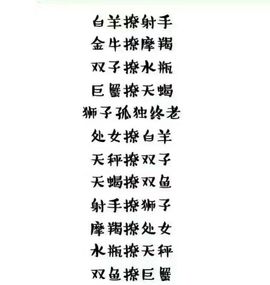 白羊撩射手
金牛撩摩羯
双子撩水瓶
巨蟹撩天蝎
狮子孤独终老
处女撩白羊
天秤撩双子
天蝎撩双鱼
射手撩狮子
摩羯撩处女
水瓶撩天秤
双鱼撩巨蟹